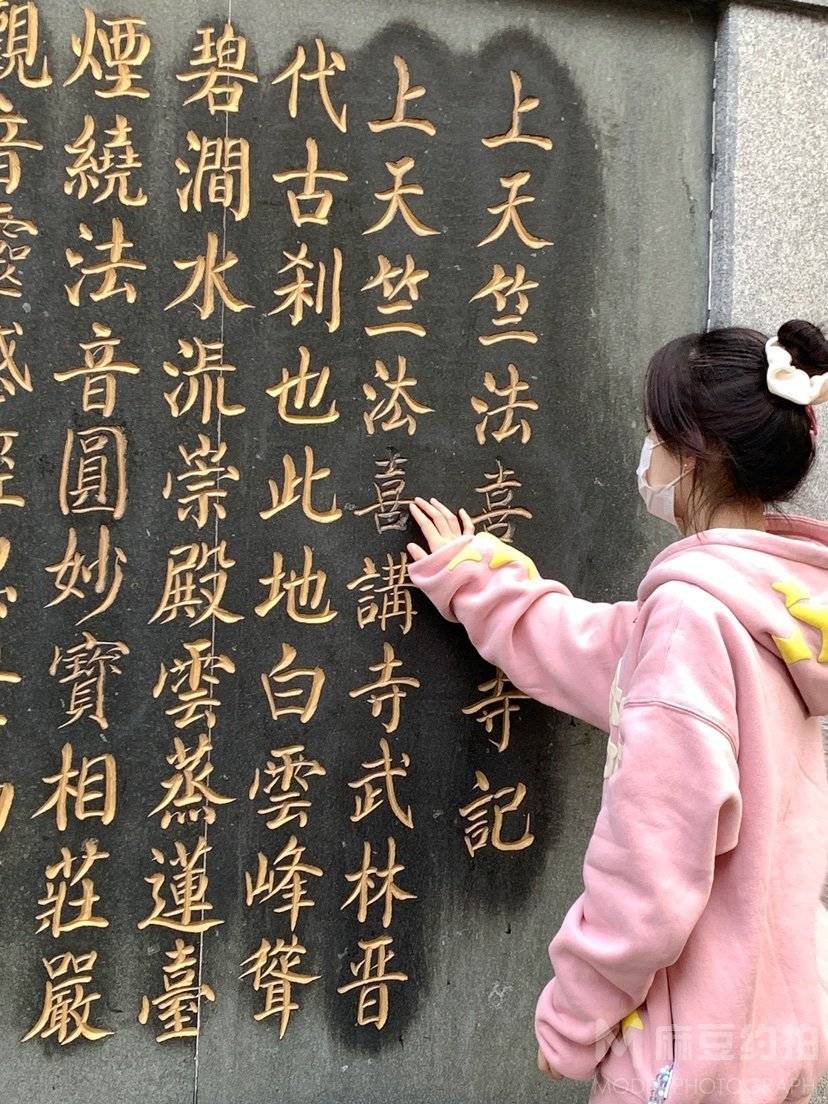 上天竺法喜寺記
上天竺法喜講寺武林晋
代古刹也此地白雲峰聳
碧澗水流崇殿雲蒸蓮臺
煙繞法音圓妙寶相莊嚴
觀音靈感
麻豆约拍
MODEL PHOTOGRAPH